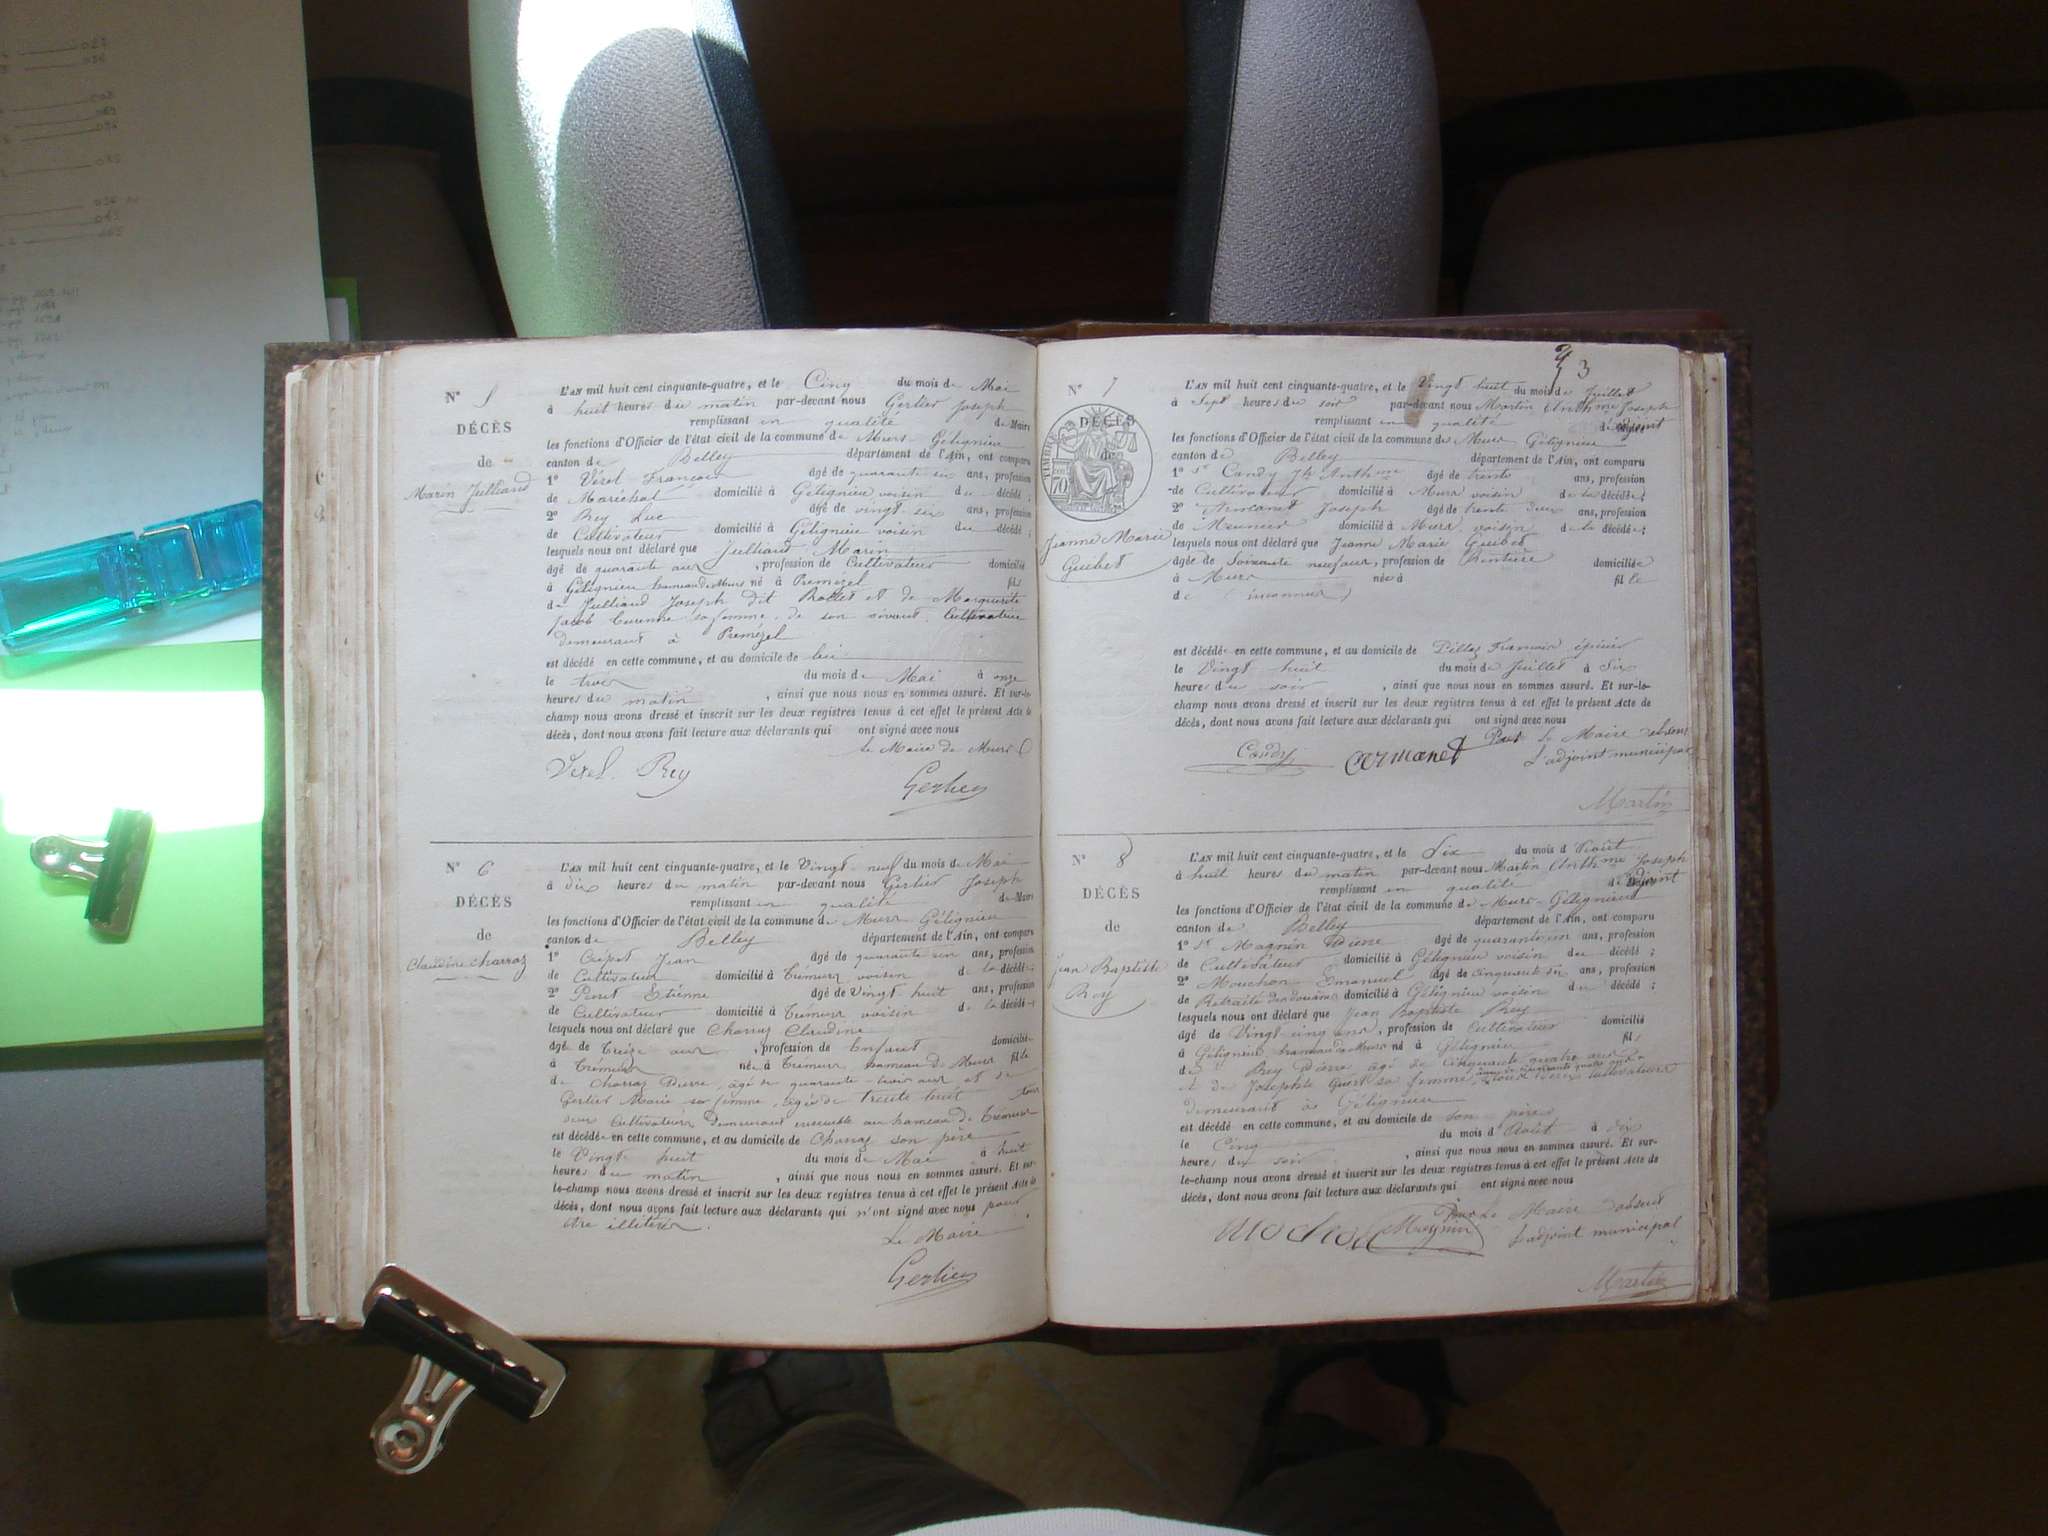 N° 5
DÉCÈS
de
Marin Julliand
L'AN mil huit cent cinquante-quatre, et le Cinq du mois de Mai
à huit heures du matin par-devant nous Gerlier Joseph
remplissant en qualité de Maire
les fonctions d'Officier de l'état civil de la commune de Murs Gélignieu
canton de Belley département de l'Ain, ont comparu
1° François âgé de quarante six ans, profession
de Maréchal domicilié à Gélignieu voisin du décédé ;
2° Rey Luc âgé de vingt six ans, profession
de Cultivateur domicilié à Gélignieu voisin du décédé ;
lesquels nous ont déclaré que Julliand Marin
âgé de quarante ans, profession de Cultivateur domicilié
à Gélignieu hameau de Murs né à Premezel fils
de Julliand Joseph dit et de Marguerite
Jacob sa femme, de son vivant Cultivatrice
demeurant à Premézel
est décédé en cette commune, et au domicile de lui
le trois du mois de Mai à onze
heures du matin, ainsi que nous nous en sommes assuré. Et sur-le-
champ nous avons dressé et inscrit sur les deux registres tenus à cet effet le présent Acte de
décès, dont nous avons fait lecture aux déclarants qui ont signé avec nous
Le Maire de Murs
Rey
Gerlier
N° 6
DÉCÈS
de
Claudine Charraz
L'AN mil huit cent cinquante-quatre, et le Vingt neuf du mois de Mai
à dix heures du matin par-devant nous Gerlier Joseph
remplissant en qualité de Maire
les fonctions d'Officier de l'état civil de la commune de Murs Gélignieu
canton de Belley département de l'Ain, ont comparu
1° Jean âgé de quarante ans, profession
de Cultivateur domicilié à Crémeur voisin de la décédée ;
2° Peret Etienne âgé de vingt huit ans, profession
de Cultivateur domicilié à Crémeur voisin de la décédée ;
lesquels nous ont déclaré que Charraz Claudine
âgé de treize ans, profession de Enfant domicilié
à Crémeur née à Crémeur hameau de Murs fille
de Charraz Pierre, âgé de quarante trois ans et de
Gerlier Marie sa femme, agée de trente huit tous
deux Cultivateurs demeurant ensemble au hameau de Crémeur
est décédée en cette commune, et au domicile de Charraz son père
le Vingt huit du mois de Mai à huit
heures du matin, ainsi que nous nous en sommes assuré. Et sur-
le-champ nous avons dressé et inscrit sur les deux registres tenus à cet effet le présent Acte de
décès, dont nous avons fait lecture aux déclarants qui n'ont signé avec nous pour
être
Le Maire
Gerlier
3
N° 7
DÉCÈS
de
TIMBRE
70
Jeanne Marie
Guibet
L'AN mil huit cent cinquante-quatre, et le Vingt huit du mois de Juillet
à Sept heures du soir par-devant nous Martin Anthme Joseph
remplissant en qualité d'adjoint
les fonctions d'Officier de l'état civil de la commune de Murs Gélignieu
canton de Belley département de l'Ain, ont comparu
1° Candy Jh Anthme âgé de trente ans, profession
de Cultivateur domicilié à Murs voisin de la décédée ;
2° Armanet Joseph âgé de trente deux ans, profession
de Meunier domicilié à Murs voisin de la décédée ;
lesquels nous ont déclaré que Jeanne Marie Guibet
âgée de Soixante neuf ans, profession de Rentière domiciliée
à Murs née à fille
de (inconnus)
est décédée en cette commune, et au domicile de François épicier
le Vingt huit du mois de Juillet à Six
heures du soir, ainsi que nous nous en sommes assuré. Et sur-le-
champ nous avons dressé et inscrit sur les deux registres tenus à cet effet le présent Acte de
décès, dont nous avons fait lecture aux déclarants qui ont signé avec nous
Pour le Maire absent
L'adjoint municipal
Candy armanet
Martin
N° 8
DÉCÈS
de
Jean Baptiste
Rey
L'AN mil huit cent cinquante-quatre, et le Six du mois d'Août
à huit heures du matin par-devant nous Martin Anthme Joseph
remplissant en qualité d'adjoint
les fonctions d'Officier de l'état civil de la commune de Murs-Gélignieu
canton de Belley département de l'Ain, ont comparu
1° Sr Magnin Pierre âgé de quarante ans, profession
de Cultivateur domicilié à Gélignieu voisin du décédé ;
2° Mouchon Emanuel âgé de cinquante six ans, profession
de Retraité des douanes domicilié à Gélignieu voisin du décédé ;
lesquels nous ont déclaré que Jean Baptiste Rey
âgé de Vingt-cinq ans, profession de Cultivateur domicilié
à Gélignieu hameau de Murs né à Gélignieu fils
de Rey Pierre âgé de cinquante quatre ans
et de Josephte sa femme, âgée de cinquante quatre ans tous deux cultivateurs
demeurant à Gélignieu
est décédé en cette commune, et au domicile de son père
le Cinq du mois d'Août à dix
heures du soir, ainsi que nous nous en sommes assuré. Et sur-
le-champ nous avons dressé et inscrit sur les deux registres tenus à cet effet le présent Acte de
décès, dont nous avons fait lecture aux déclarants qui ont signé avec nous
Pour Le Maire absent
L'adjoint municipal
Magnin
Martin